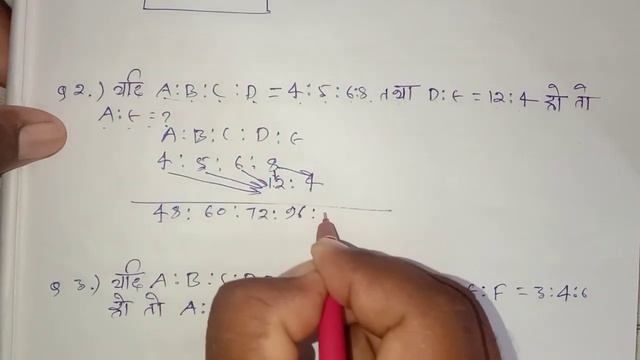 Q 2.) यदि A:B:C:D = 4:5:6:8 तथा D:E = 12:4 हो तो
A:E = ?
A:B:C:D:E
4:5:6:8
12:4
48:60:72:96:
Q 3.) यदि A:B:C:D
E:F = 3:4:6
हो तो A: